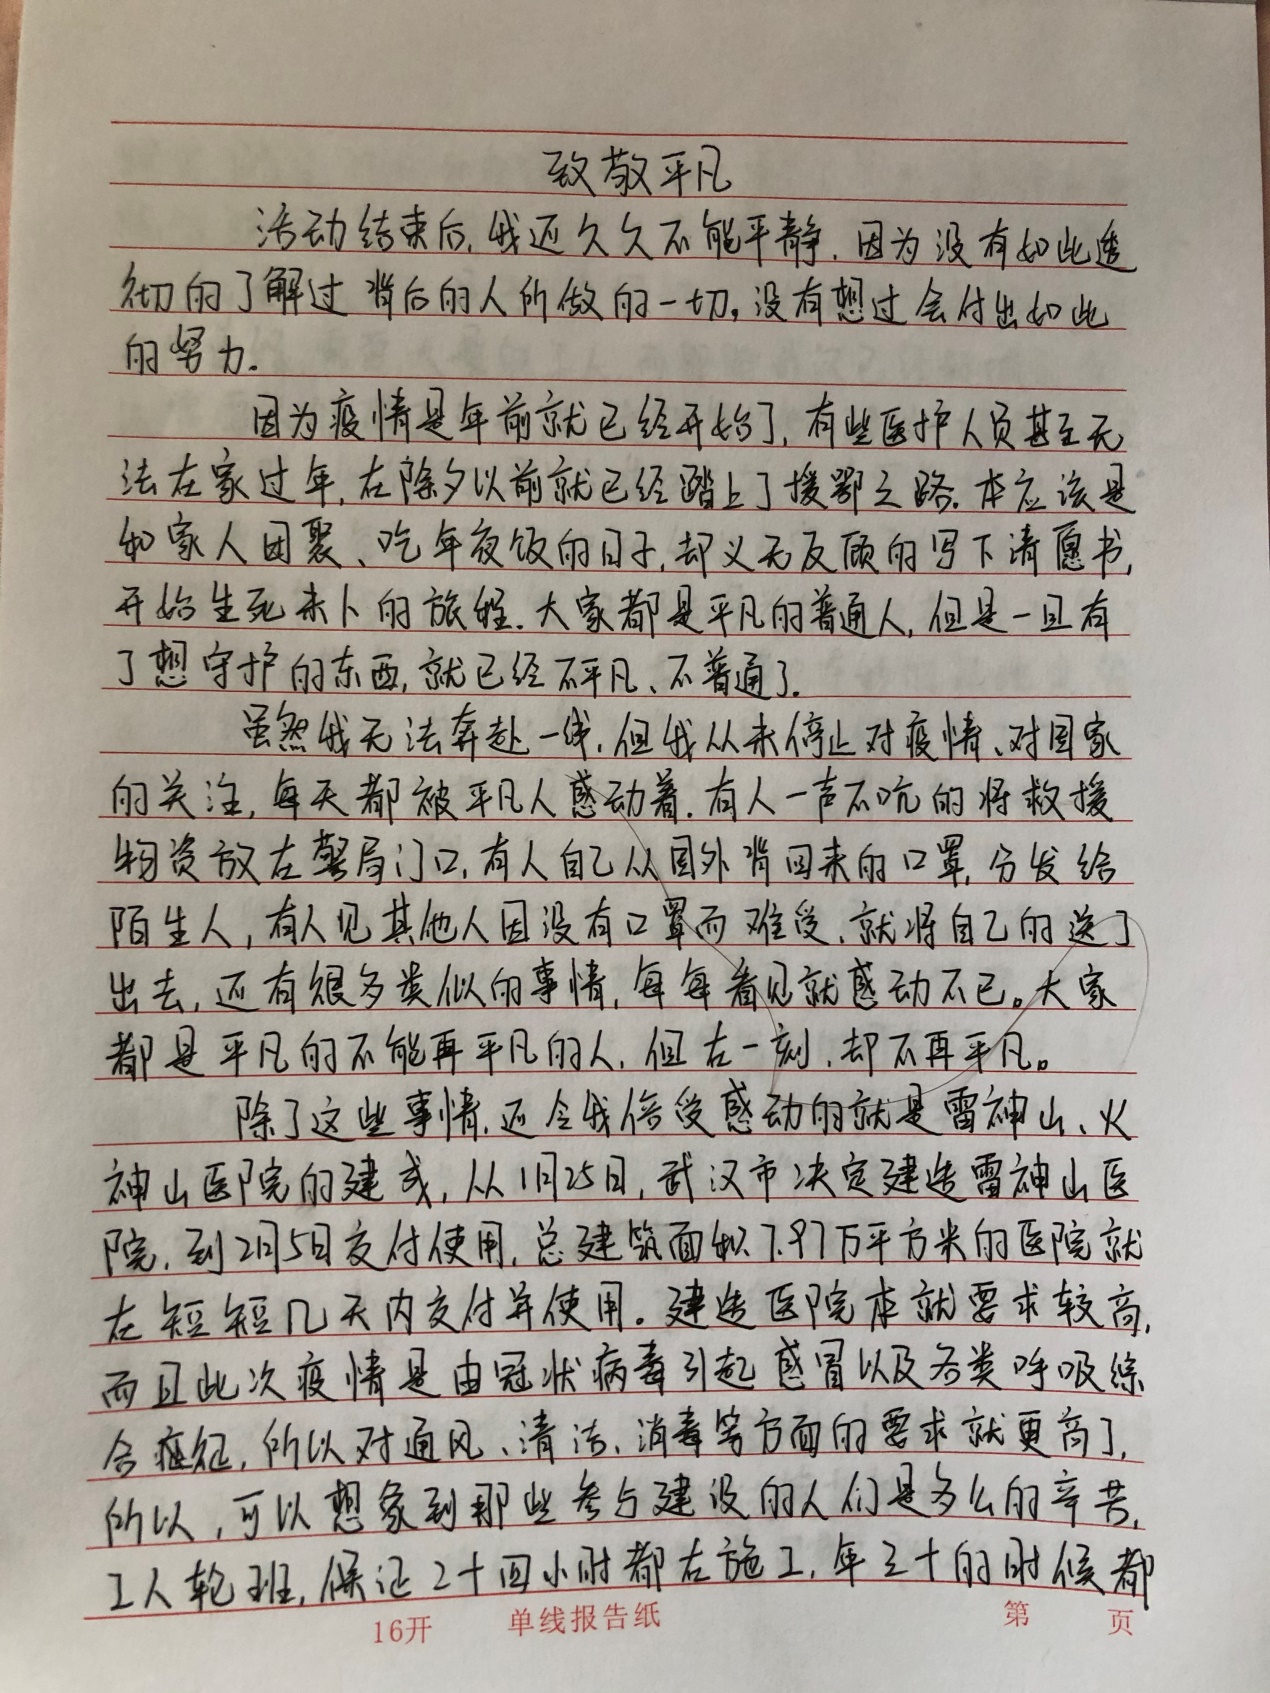 致敬平凡
活动结束后,我还久久不能平静.因为没有如此透
彻的了解过背后的人所做的一切。没有想过会付出如此
的努力.
因为疫情是年前就已经开始了,有些医护人员甚至无
法在家过年,在除夕以前就已经踏上了援鄂之路.本应该是
和家人团聚、吃年夜饭的日子,却义无反顾的写下请愿书,
开始生死未卜的旅程.大家都是平凡的普通人,但是一旦有
了想守护的东西,就已经不平凡、不普通了.
虽然我无法奔赴一线,但我从未停止对疫情、对国家
的关注,每天都被平凡人感动着.有人一声不吭的将救援
物资放在警局门口,有人自己从国外背回来的口罩,分发给
陌生人,有人见其他人因没有口罩而难受,就将自己的送了
出去,还有很多类似的事情,每每看见就感动不已。大家
都是平凡的不能再平凡的人,但在一刻,却不再平凡。
除了这些事情,还令我倍受感动的就是雷神山、火
神山医院的建成,从1月25日,武汉市决定建造雷神山医
院,到2月5日交付使用,总建筑面积7.97万平方米的医院就
在短短几天内交付并使用。建造医院本就要求较高,
而且此次疫情是由冠状病毒引起感冒以及各类呼吸综
合症征,所以对通风、清洁、消毒等方面的要求就更高了,
所以,可以想象到那些参与建设的人们是多么的辛苦,
工人轮班,保证二十四小时都在施工,年三十的时候都
16开 单线报告纸 第 页